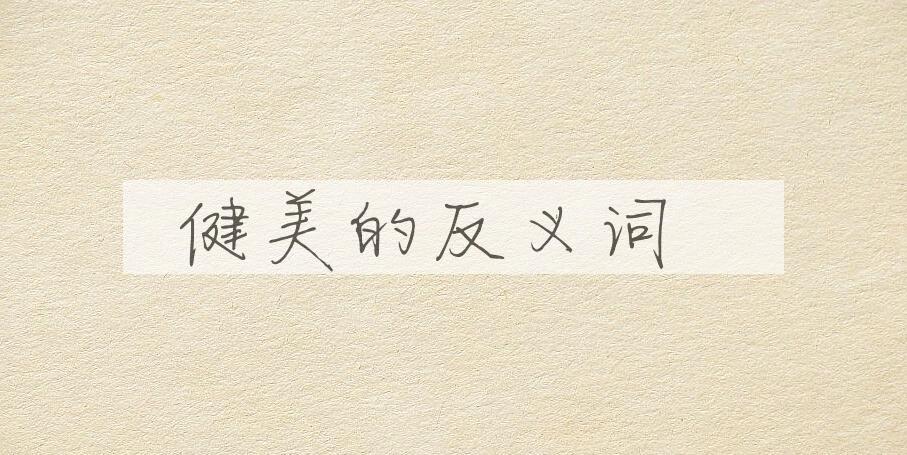 健美的反义词